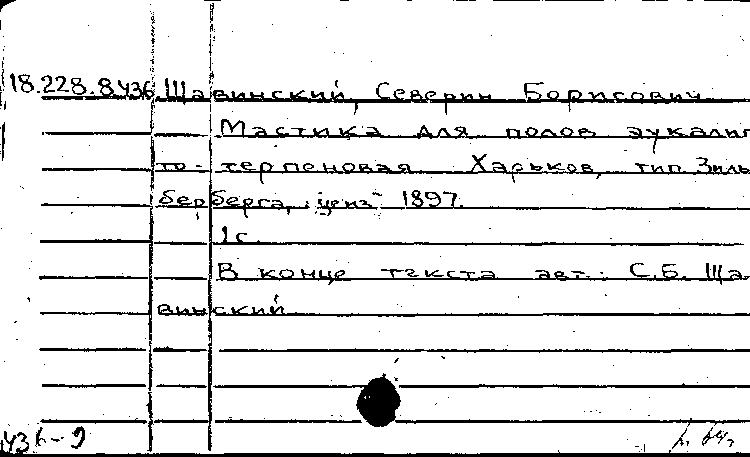 18.228.8436 Щавинский, Северин Борисович
Мастика для полов эукалип
то-терпеновая. Харьков, тип. Зиль
берберга, ценз. 1897.
1 с.
В конце текста авт.: С.Б. Ща-
винский
436-9